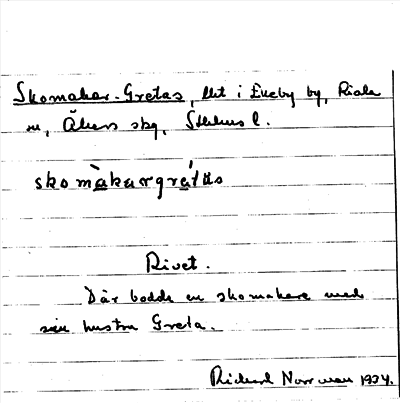 Skomakar-Gretas, lht i Eneby by, Riala
sn, Åkers skg, Sthlms l.
skomàkargrétas
Rivet.
Där bodde en skomakare med
sin hustru Greta.
Rickard Norrman 1934.